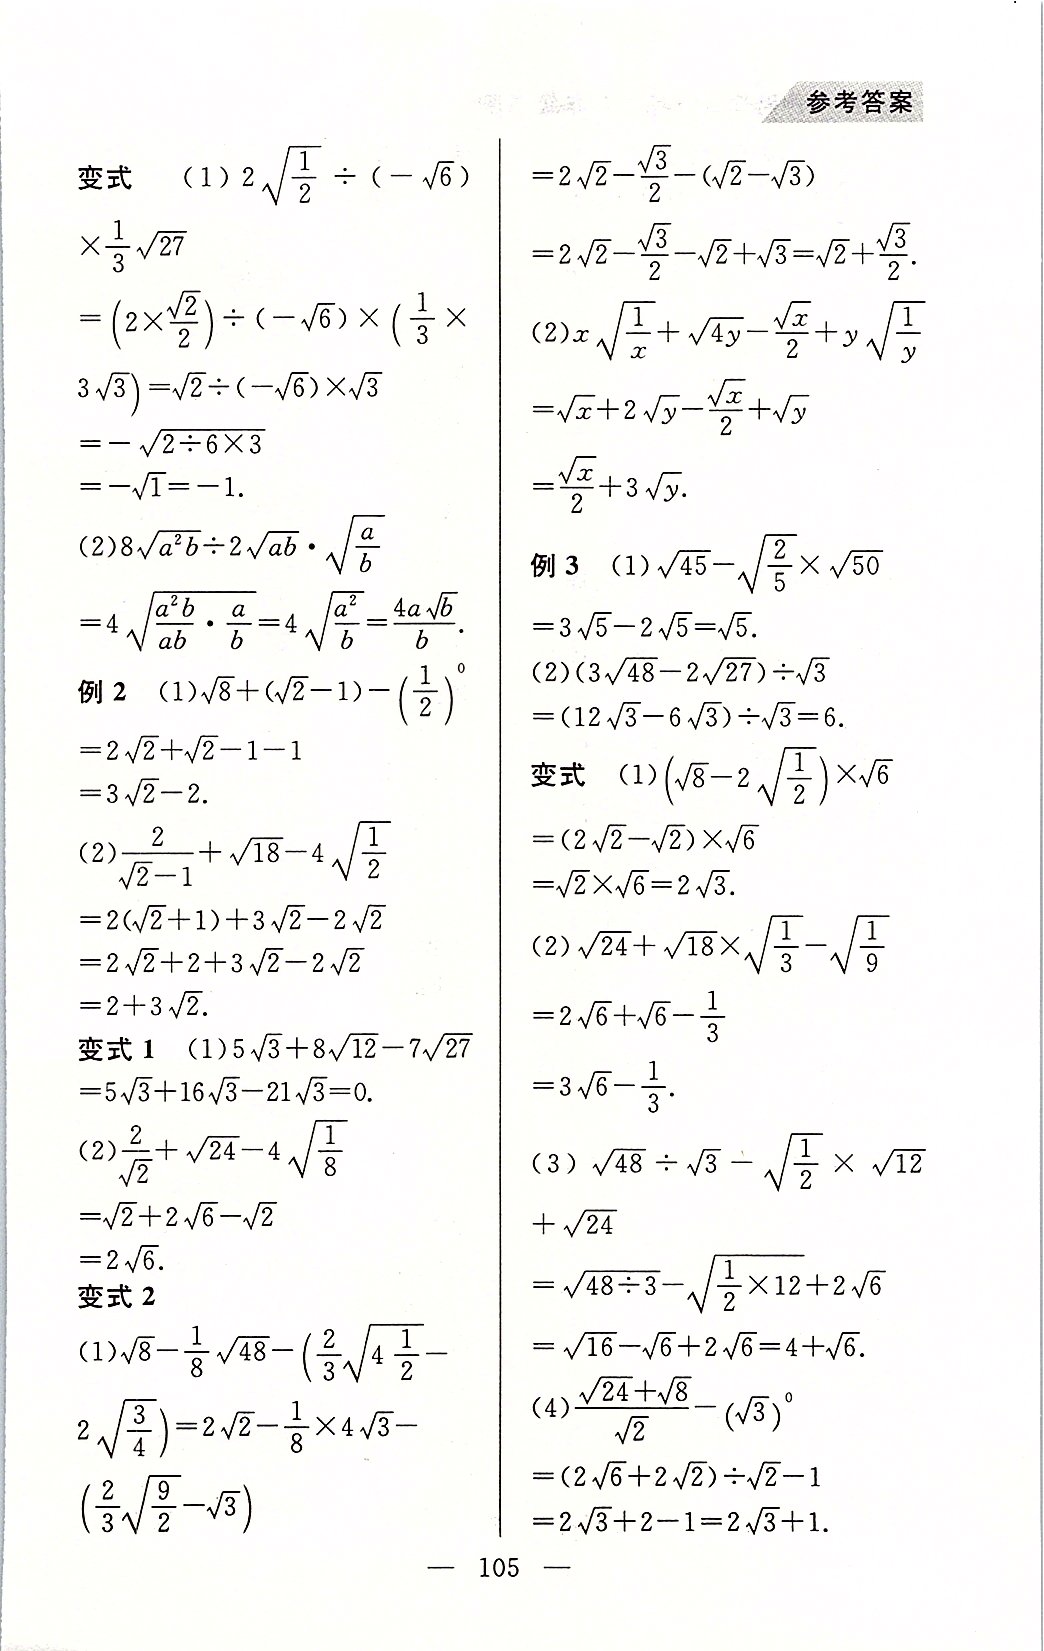 参考答案
变式 (1) 2√(1/2) ÷ (−√6)
×1/3 √27
= (2×√2/2) ÷ (−√6) × (1/3 ×
3√3) = √2÷(−√6)×√3
= −√(2÷6×3)
= −√1 = −1.
(2) 8√(a²b) ÷ 2√(ab) · √(a/b)
= 4√(a²b/ab · a/b) = 4√(a²/b) = 4a√b/b.
例 2 (1) √8+(√2−1)−(1/2)⁰
=2√2+√2−1−1
=3√2−2.
(2) 2/(√2−1) + √18 − 4√(1/2)
=2(√2+1)+3√2−2√2
=2√2+2+3√2−2√2
=2+3√2.
变式 1 (1) 5√3+8√12−7√27
=5√3+16√3−21√3=0.
(2) 2/√2 + √24 − 4√(1/8)
=√2+2√6−√2
=2√6.
变式 2
(1) √8 − 1/8 √48 − (2/3 √(4 1/2) −
2√(3/4)) = 2√2 − 1/8 ×4√3 −
(2/3 √(9/2) − √3)
=2√2−√3/2−(√2−√3)
=2√2−√3/2−√2+√3=√2+√3/2.
(2) x√(1/x) + √(4y) − √x/2 + y√(1/y)
=√x+2√y−√x/2+√y
=√x/2+3√y.
例 3 (1) √45 − √(2/5) × √50
=3√5−2√5=√5.
(2) (3√48−2√27)÷√3
=(12√3−6√3)÷√3=6.
变式 (1) (√8−2√(1/2))×√6
=(2√2−√2)×√6
=√2×√6=2√3.
(2) √24+√18×√(1/3)−√(1/9)
=2√6+√6−1/3
=3√6−1/3.
(3) √48 ÷ √3 − √(1/2) × √12
+√24
=√(48÷3)−√(1/2 ×12)+2√6
=√16−√6+2√6=4+√6.
(4) (√24+√8)/√2 − (√3)⁰
=(2√6+2√2)÷√2−1
=2√3+2−1=2√3+1.
— 105 —